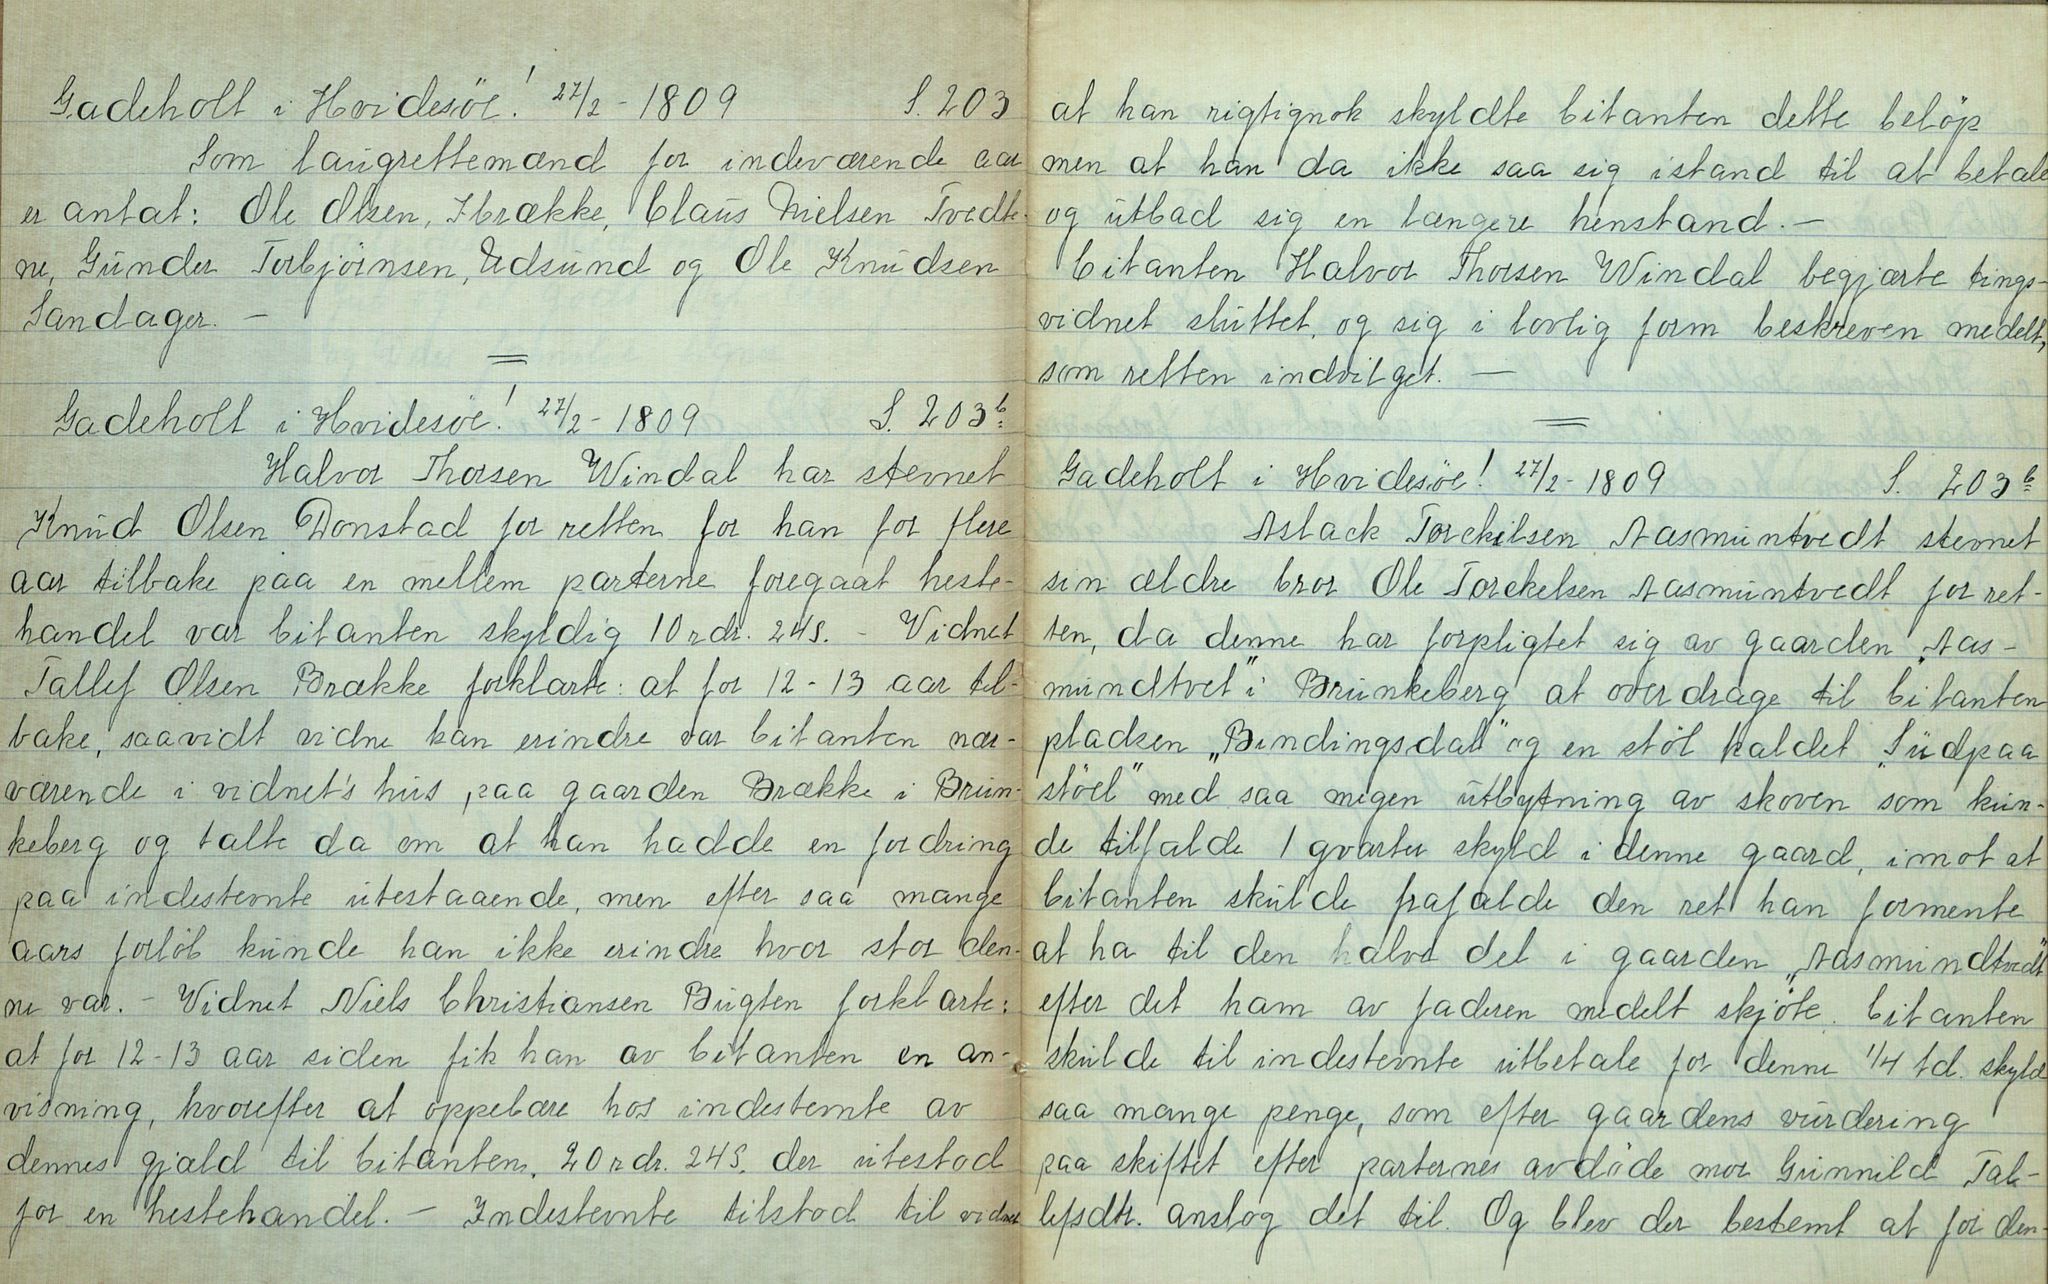 Gadeholt i Hvidesöe! 27/2 - 1809 S. 203
Som laugrettemænd for indeværende aar
er antat: Ole Olsen, Ibrække, Claus Nielsen Tvedte-
ne, Gunder Torbjörnsen, Udsund og Ole Knudsen
Sandager. —
Gadeholt i Hvidesöe! 27/2 - 1809 S. 203b
Halvor Thorsen Windal har stevnet
Knud Olsen Donstad for retten for han for flere
aar tilbake paa en mellem parterne foregaat heste-
handel var Citanten skyldig 10 rdr. 24 S. - Vidnet
Tallef Olsen Brække forklarte: at for 12 - 13 aar til-
bake, saavidt vidne kan erindre var Citanten nær-
værende i vidnet's hus, paa gaarden Brække i Brun-
keberg og talte da om at han hadde en fordring
paa indestevnte utestaaende, men efter saa mange
aars forlöb kunde han ikke erindre hvor stor den-
ne var. - Vidnet Niels Christiansen Bugten forklarte:
at for 12 - 13 aar siden fik han av Citanten en an-
visning, hvorefter at oppebære hos indestevnte av
dennes gjæld til Citanten, 20 rdr. 24 S. der utestod
for en hestehandel. — Indestevnte tilstod til vidnet
at han rigtignok skyldte Citanten dette belöp
men at han da ikke saa sig istand til at betale
og utbad sig en længere henstand. —
Citanten Halvor Thorsen Windal begjærte tings-
vidnet sluttet, og sig i lovlig form beskreven medelt,
som retten indvilget. —
Gadeholt i Hvidesöe! 27/2 - 1809 S. 203b
Aslack Torckilsen Aasmuntvedt stevnet
sin ældre bror Ole Torckelsen Aasmuntvedt for ret-
ten, da denne har forpligtet sig av gaarden „Aas-
mundtvet" i Brunkeberg at overdrage til Citanten
pladsen „Bindingsdal" og en stöl kaldet „Sudpaa
stöel" med saa megen utbytning av skoven som kun-
de tilfalde 1 qvarter skyld i denne gaard, imot at
Citanten skulde frafalde den ret han formente
at ha til den halve del i gaarden „Aasmundtvedt"
efter det ham av faderen medelt skjöte. Citanten
skulde til indestevnte utbetale for denne 1/4 td. skyld
saa mange penge, som efter gaardens vurdering
paa skiftet efter parternes avdöde mor Gunnild Tal-
lefsdtr. anslog det til. Og blev der bestemt at for den-